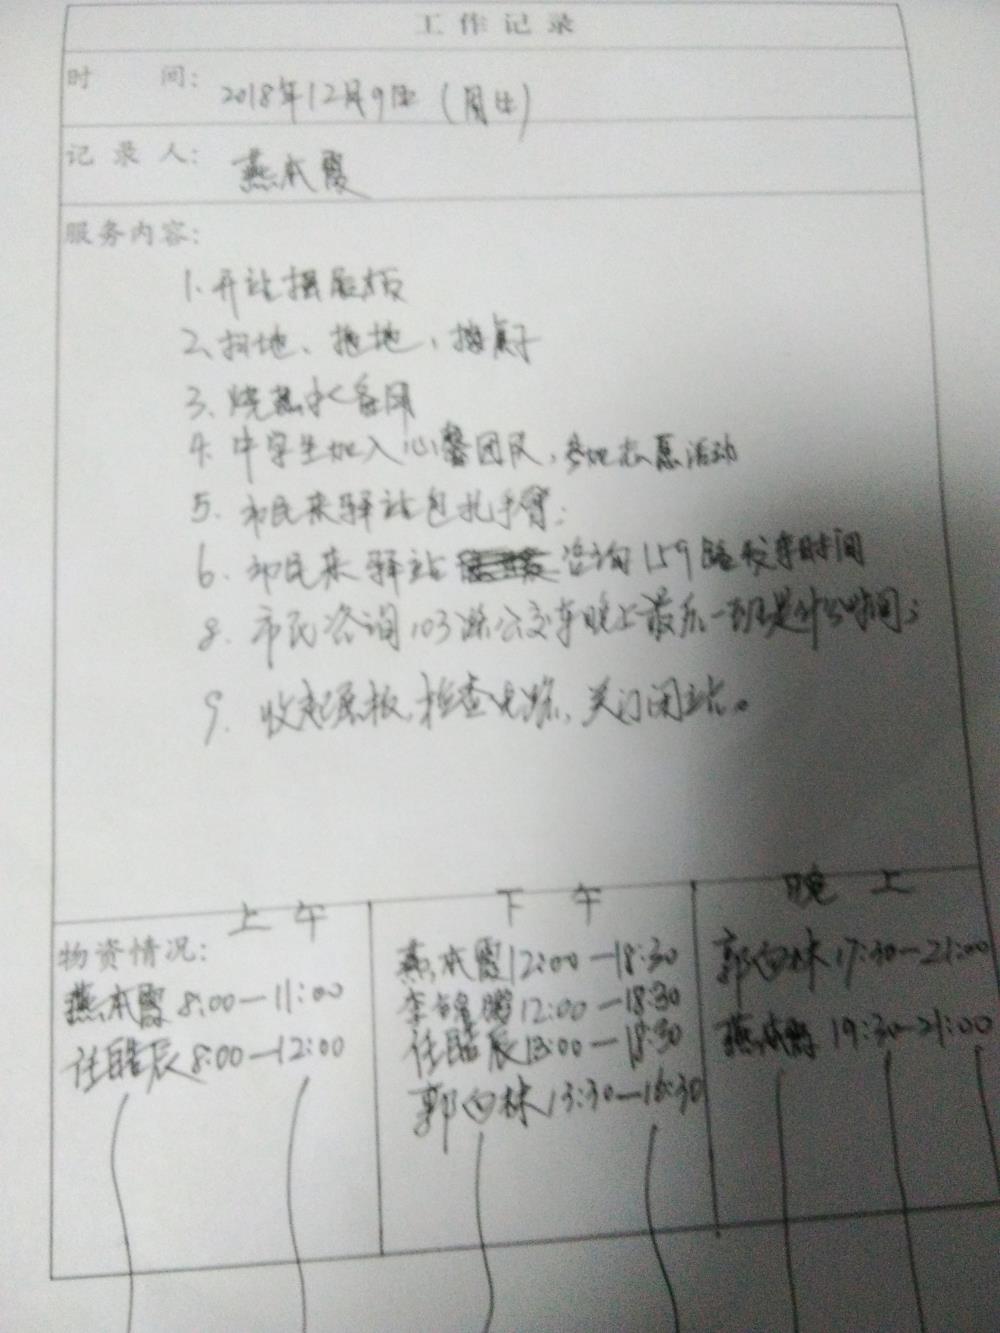 工作记录
时 间: 2018年12月9日 (周日)
记录人: 燕本霞
服务内容:
1. 开站摆展板
2. 扫地、拖地，擦桌子
3. 烧热水备用
4. 中学生加入心馨团队，参加志愿活动
5. 市民来驿站包扎手臂;
6. 市民来驿站 咨询159路发车时间
8. 市民咨询103路公交车晚上最后一班是什么时间;
9. 收起展板，检查电源，关门闭站。
上午 下午 晚上
物资情况:
燕本霞 8:00—11:00
任 辰 8:00—12:00
燕本霞 12:00—18:30
李 12:00—18:30
任 辰 13:00—18:30
郭向林 13:30—16:30
郭向林 17:30—21:00
燕本霞 19:30—21:00